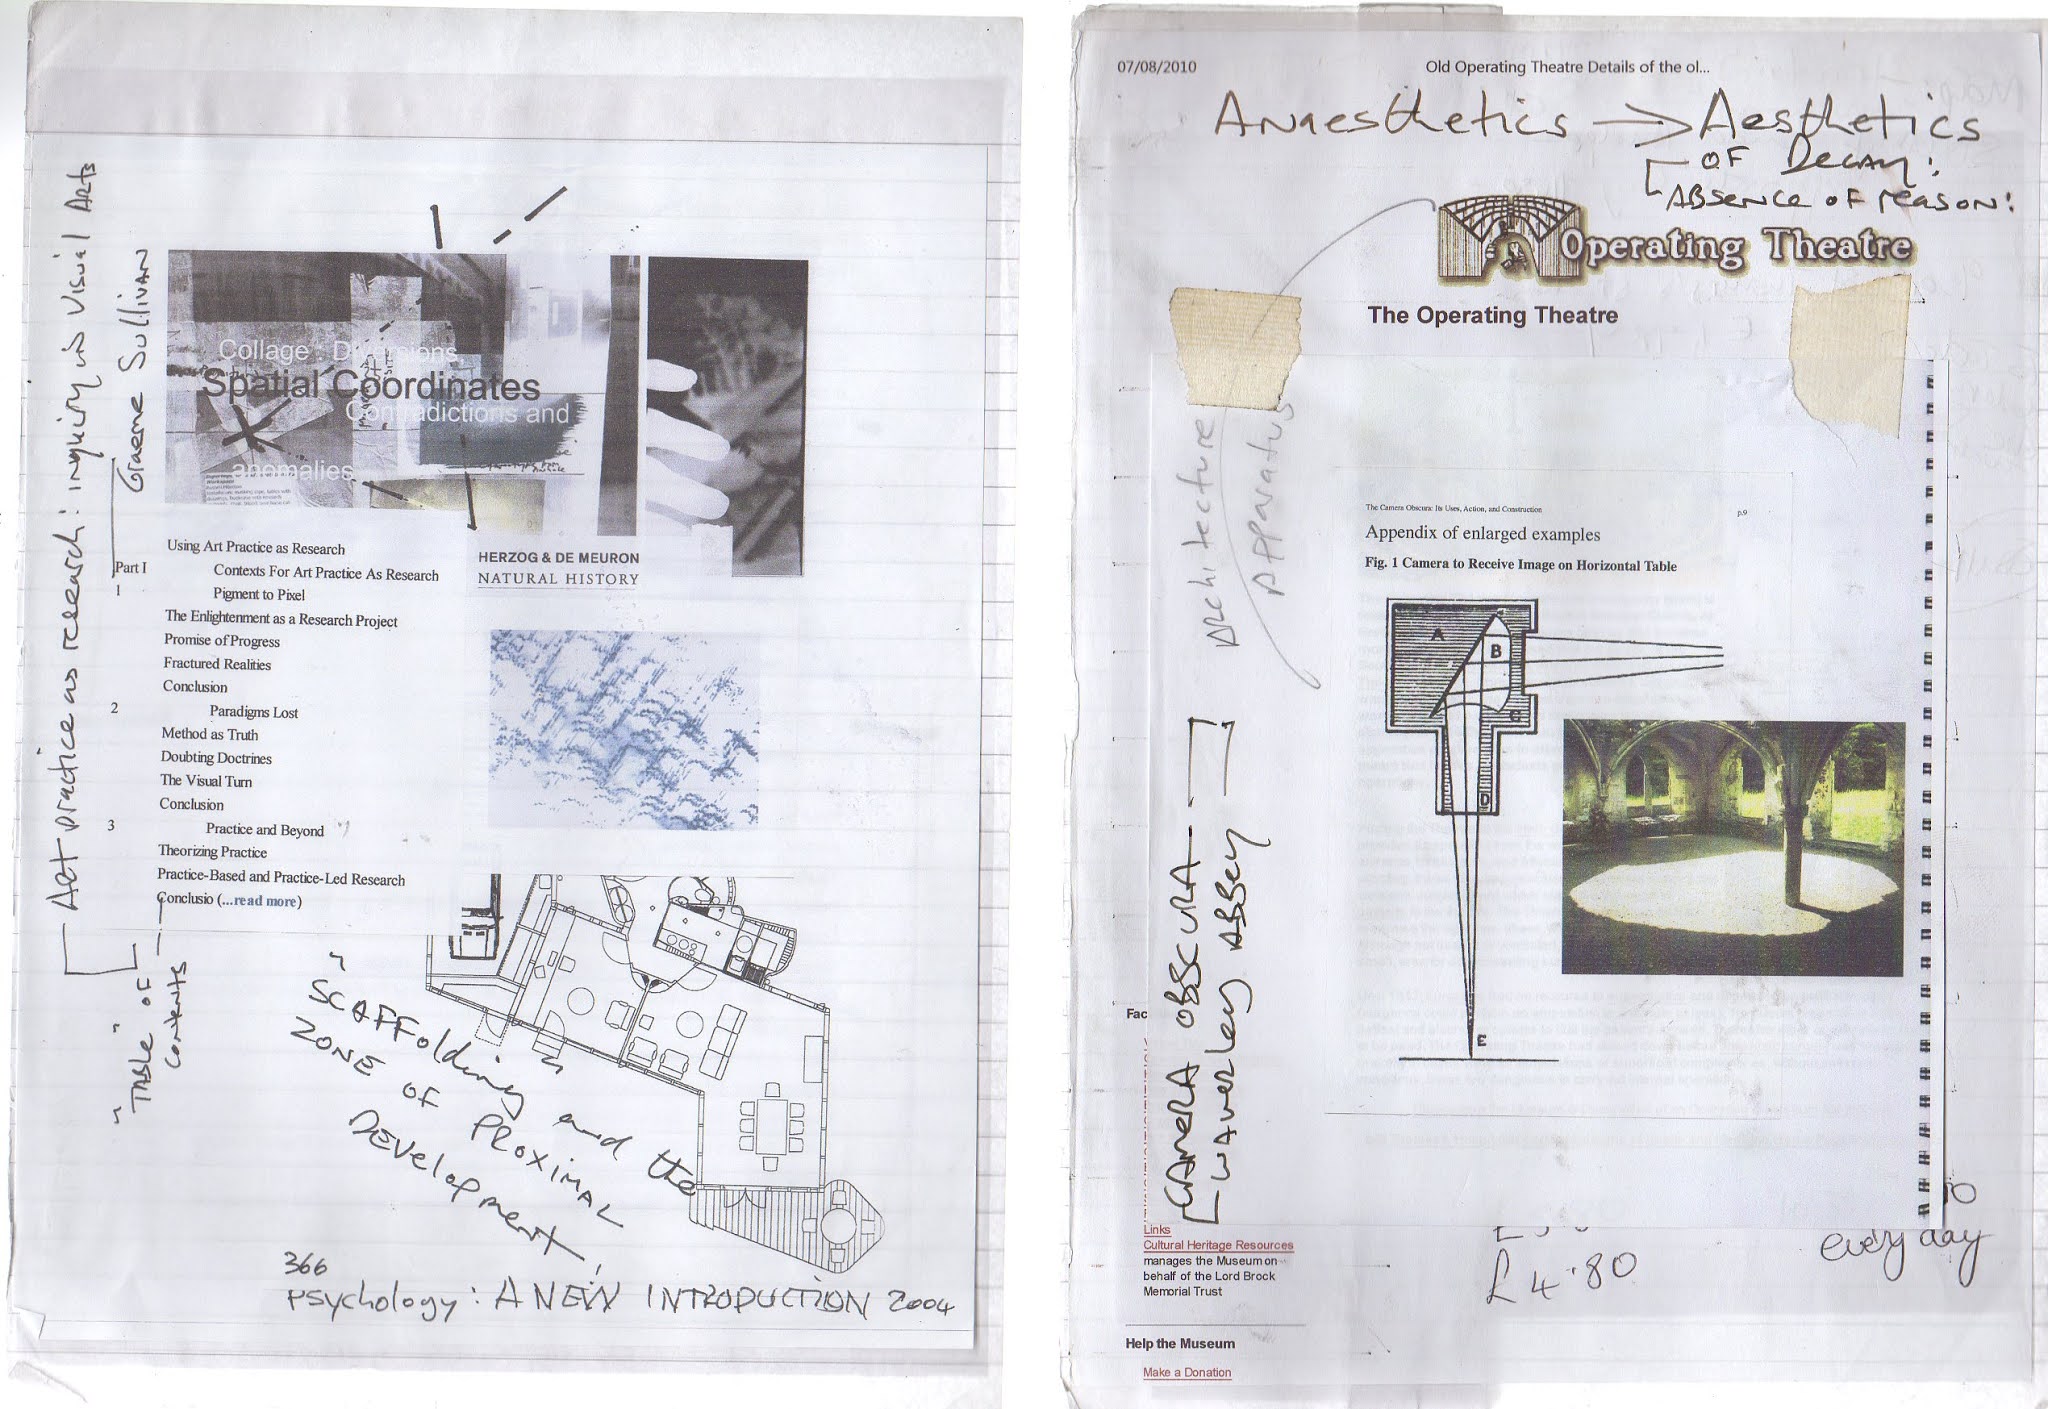 Art practice as research: inquiry in visual Arts
Graeme Sullivan
Collage : Diversions,
Spatial Coordinates
Contradictions and
anomalies
HERZOG & DE MEURON
NATURAL HISTORY
Using Art Practice as Research
Part I
Contexts For Art Practice As Research
1
Pigment to Pixel
The Enlightenment as a Research Project
Promise of Progress
Fractured Realities
Conclusion
2
Paradigms Lost
Method as Truth
Doubting Doctrines
The Visual Turn
Conclusion
3
Practice and Beyond
Theorizing Practice
Practice-Based and Practice-Led Research
Conclusio (...read more)
"TABLE" OF
Contents
"SCAFFolding" and the
ZONE OF PROXIMAL
DEVElopment,
366
Psychology: A NEW INTRODUCTION 2004
07/08/2010
Old Operating Theatre Details of the ol...
Anaesthetics → Aesthetics
OF Decay:
ABSENCE OF reason:
Operating Theatre
The Operating Theatre
Architecture
Apparatus
The Camera Obscura: Its Uses, Action, and Construction
p.9
Appendix of enlarged examples
Fig. 1 Camera to Receive Image on Horizontal Table
A
B
C
D
E
CAMERA OBSCURA
Waverley ABBey
Fac
Links
Cultural Heritage Resources
manages the Museum on
behalf of the Lord Brock
Memorial Trust
£4.80
every day
Help the Museum
Make a Donation